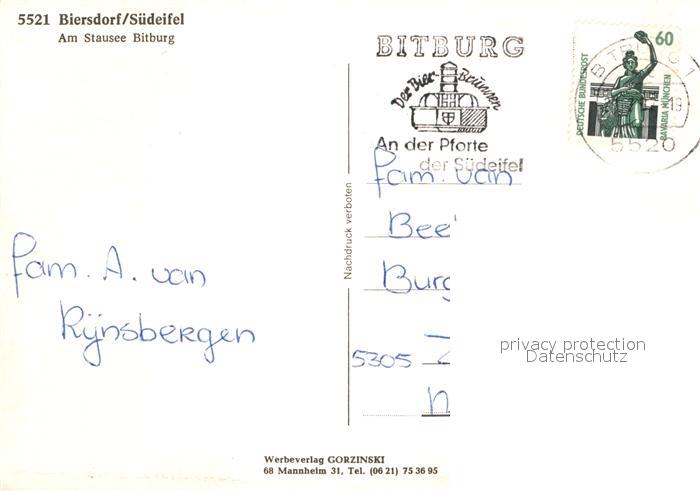 5521 Biersdorf/Südeifel
Am Stausee Bitburg
BITBURG
Der Bier-Brunnen
An der Pforte
der Südeifel
60
DEUTSCHE BUNDESPOST
BAVARIA MÜNCHEN
5520
Nachdruck verboten
Fam. van
Bee
Burg
5305
Fam. A. van
Rijnsbergen
privacy protection
Datenschutz
Werbeverlag GORZINSKI
68 Mannheim 31, Tel. (06 21) 75 36 95